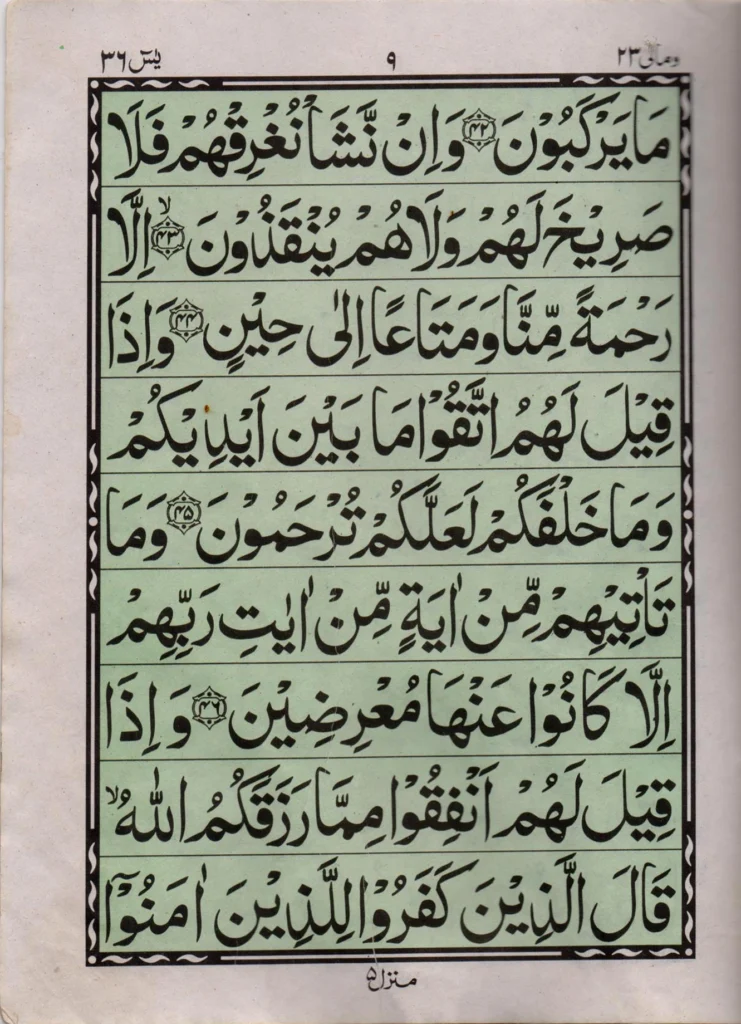 یٰسٓ ۳۶ ۹ ومالی ۲۳
مَا یَرْكَبُوْنَ ﴿۴۲﴾ وَ اِنْ نَّشَاْ نُغْرِقْهُمْ فَلَا
صَرِیْخَ لَهُمْ وَلَا هُمْ یُنْقَذُوْنَ ﴿۴۳﴾ۙ اِلَّا
رَحْمَةً مِّنَّا وَ مَتَاعًا اِلٰی حِیْنٍ ﴿۴۴﴾ وَ اِذَا
قِیْلَ لَهُمُ اتَّقُوْا مَا بَیْنَ اَیْدِیْكُمْ
وَ مَا خَلْفَكُمْ لَعَلَّكُمْ تُرْحَمُوْنَ ﴿۴۵﴾ وَ مَا
تَاْتِیْهِمْ مِّنْ اٰیَةٍ مِّنْ اٰیٰتِ رَبِّهِمْ
اِلَّا كَانُوْا عَنْهَا مُعْرِضِیْنَ ﴿۴۶﴾ وَ اِذَا
قِیْلَ لَهُمْ اَنْفِقُوْا مِمَّا رَزَقَكُمُ اللّٰهُ ۙ
قَالَ الَّذِیْنَ كَفَرُوْا لِلَّذِیْنَ اٰمَنُوْۤا
منزل ۵